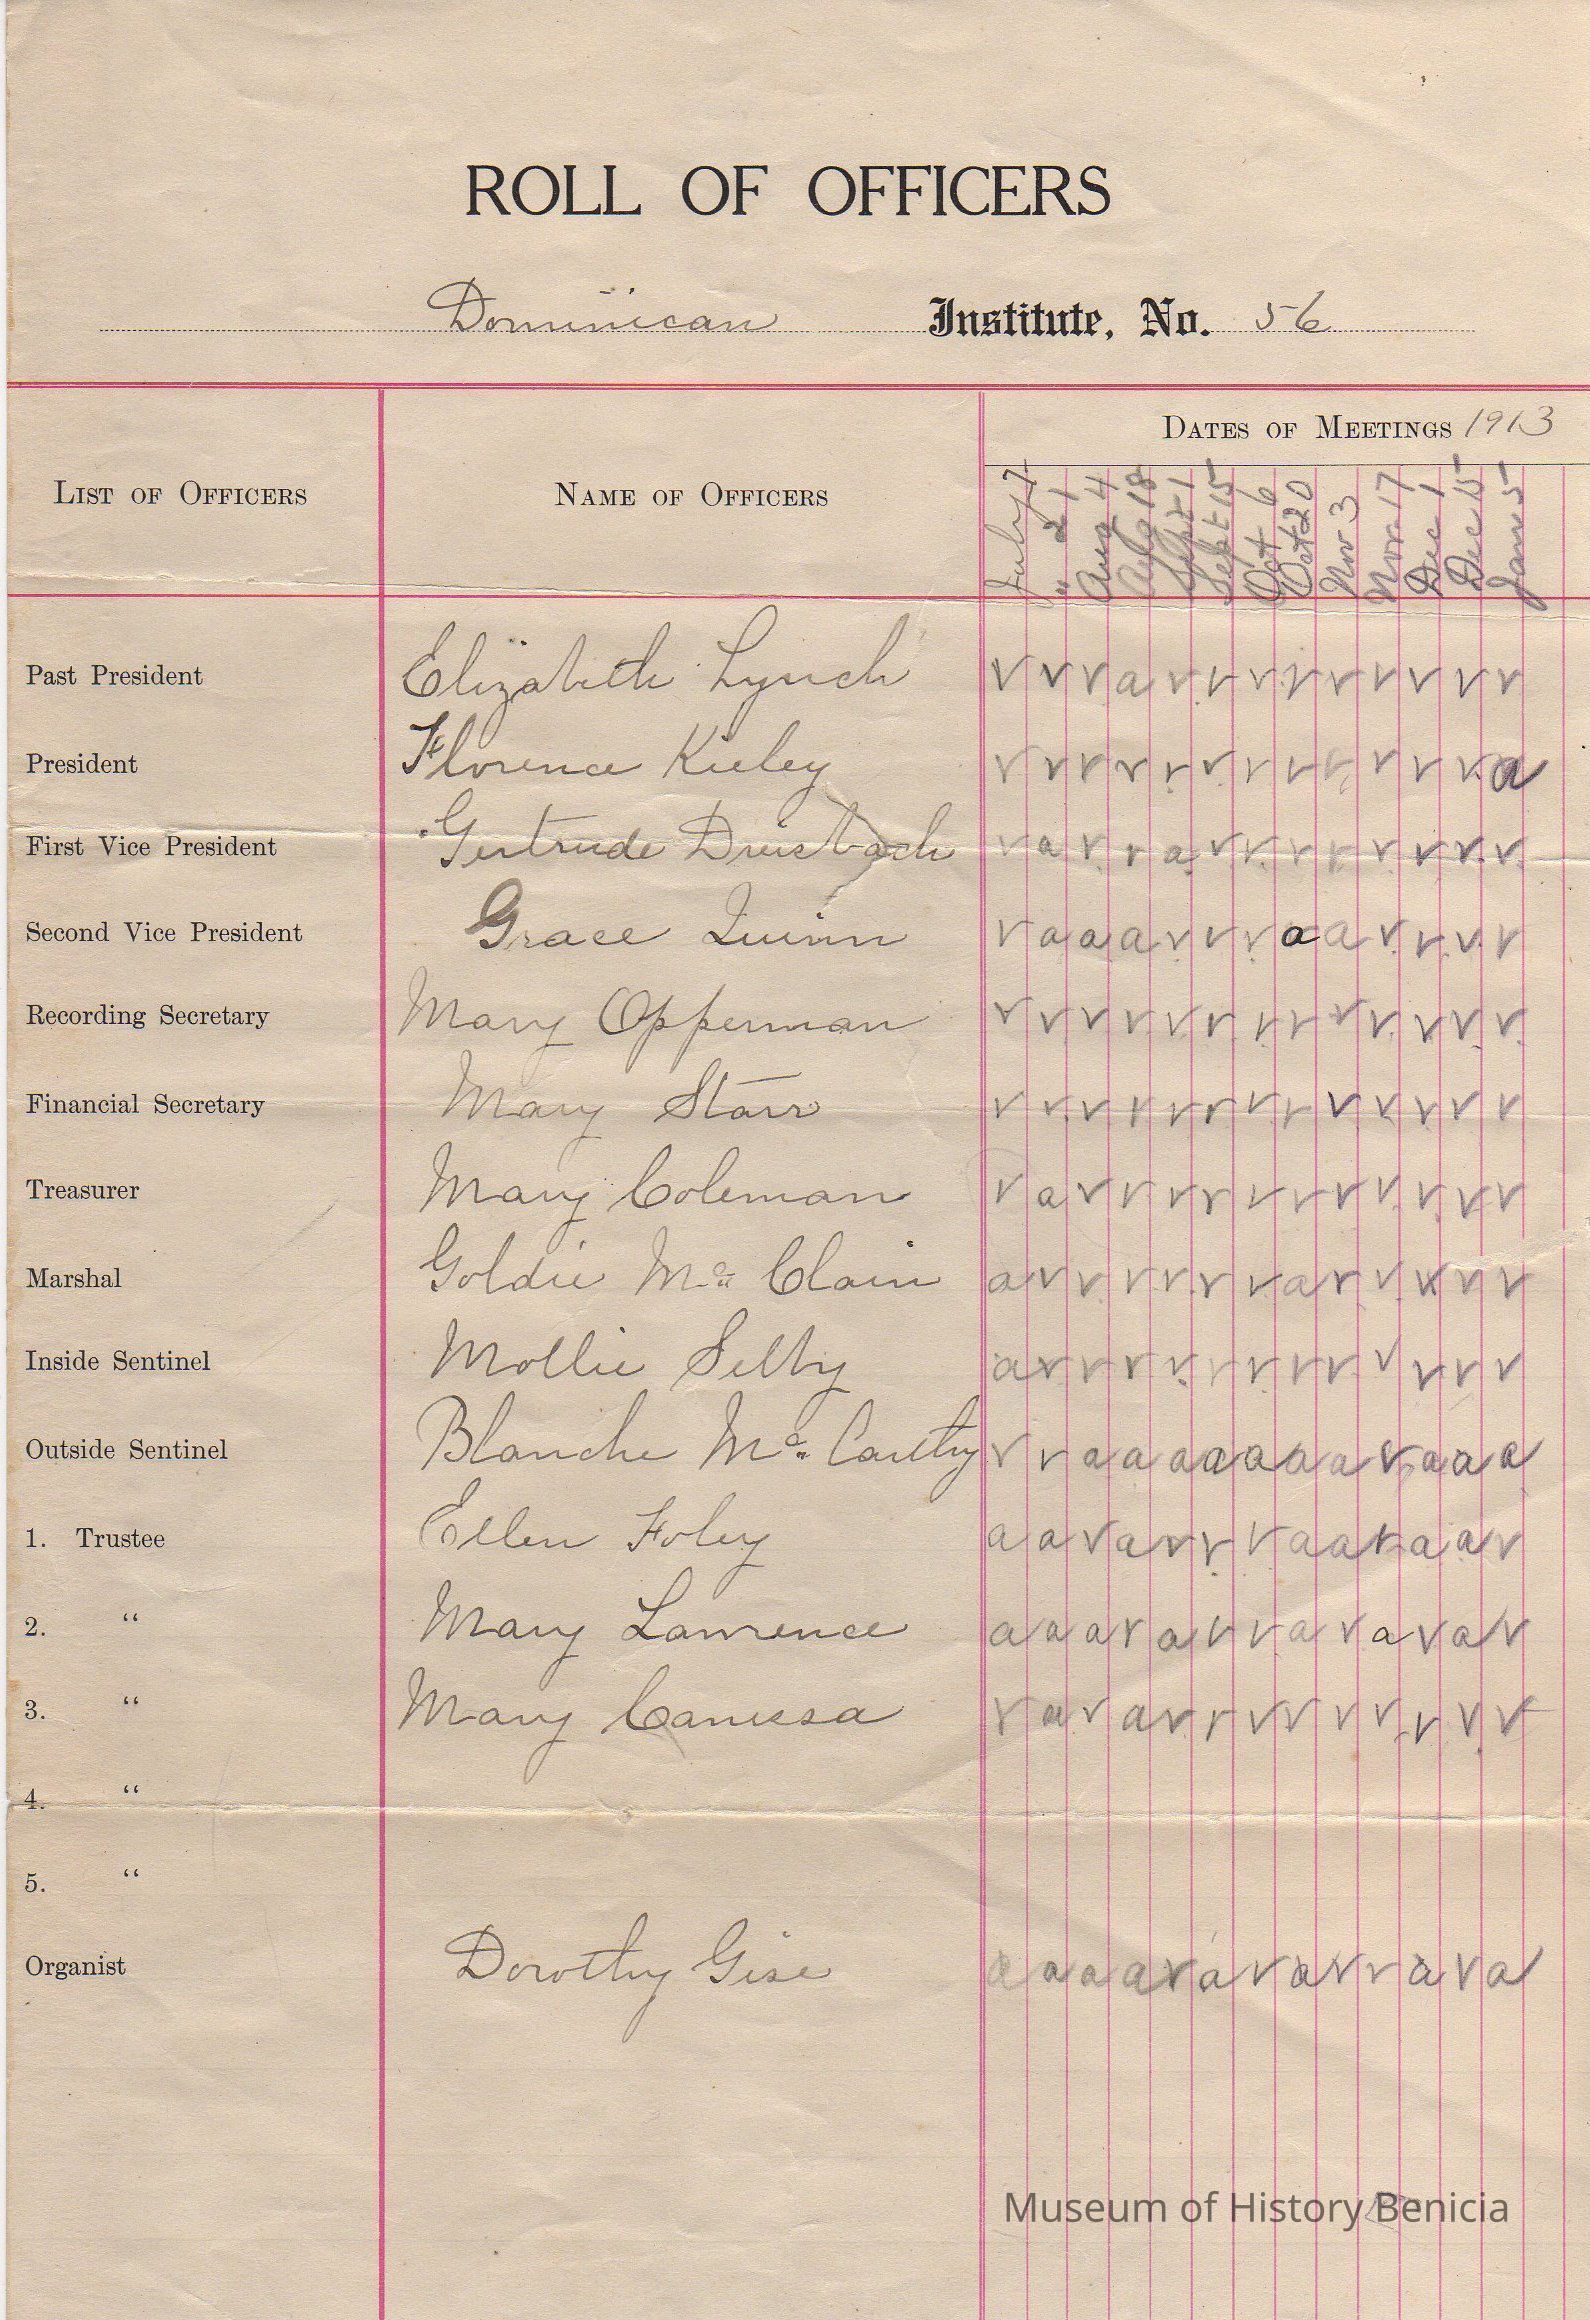 ROLL OF OFFICERS
Dominican Institute, No. 56
LIST OF OFFICERS NAME OF OFFICERS DATES OF MEETINGS 1913
July 7 " 21 Aug 4 Aug 18 Sept 1 Sept 15 Oct 6 Oct 20 Nov 3 Nov 17 Dec 1 Dec 15 Jan 5
Past President Elizabeth Lynch v v v a v v v v v v v v v
President Florence Kieley v v v v v v v v v v v v a
First Vice President Gertrude Driesbach v a v v a v v v v v v v v
Second Vice President Grace Quinn v a a a v v v a a v v v v
Recording Secretary Mary Opperman v v v v v v v v v v v v v
Financial Secretary Mary Starr v v v v v v v v v v v v v
Treasurer Mary Coleman v a v v v v v v v v v v v
Marshal Goldie McClain a v v v v v v a v v v v v
Inside Sentinel Mollie Selby a v v v v v v v v v v v v
Outside Sentinel Blanche McCarthy v v a a a a a a a v a a a
1. Trustee Ellen Foley a a v a v v v a a v a a v
2. “ Mary Lawrence a a a v a v v a v a v a v
3. “ Mary Canessa v a v a v v v v v v v v v
4. “
5. “
Organist Dorothy Gise a a a a v a v a v v a v a
Museum of History Benicia